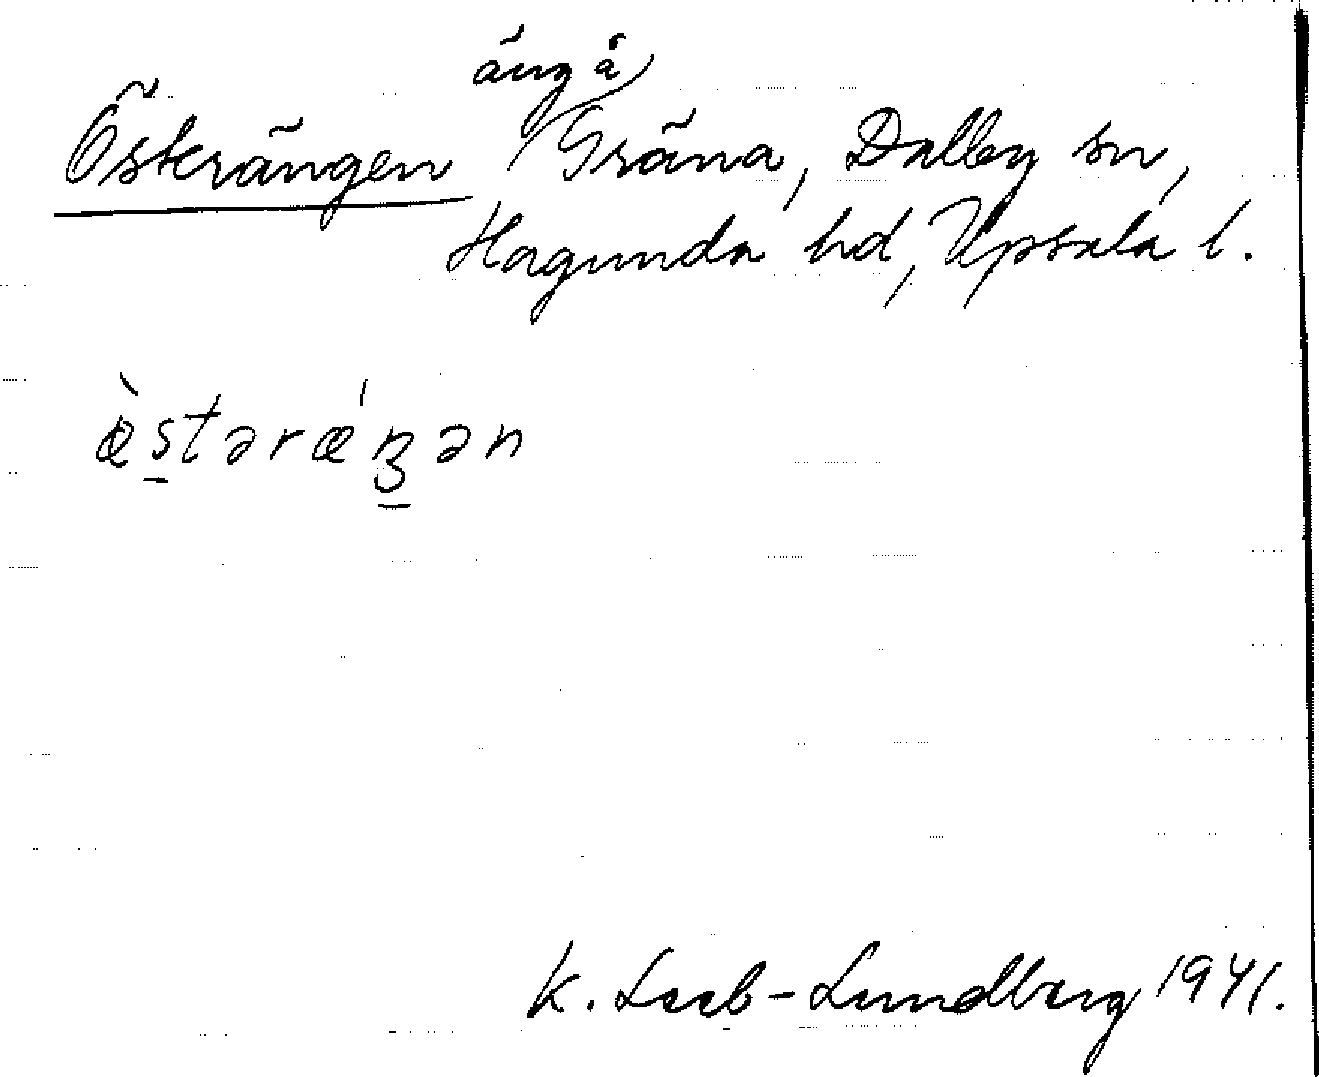 äng å
Österängen Gräna, Dalby sn,
Hagunda hd, Upsala l.
œ̀s̠tərœ́ŋ̠ən
K. Leeb-Lundberg 1941.